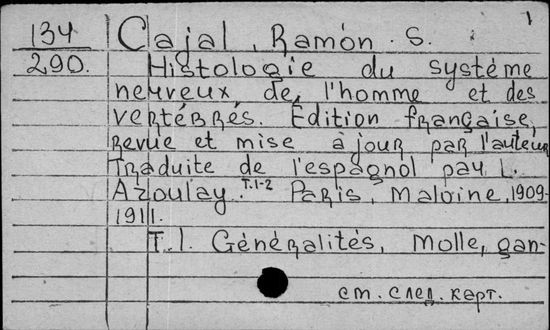 1
134 Cajal, Ramón S.
290. Histologie du système
nerveux de l'homme et des
vertébrés. Édition française,
revue et mise à jour par l'auteur
Traduite de l'espagnol par L.
Azoulay. T.1-2 Paris, Maloine, 1909-
1911.
T.1. Généralités, Molle, gan-
см. след. карт.